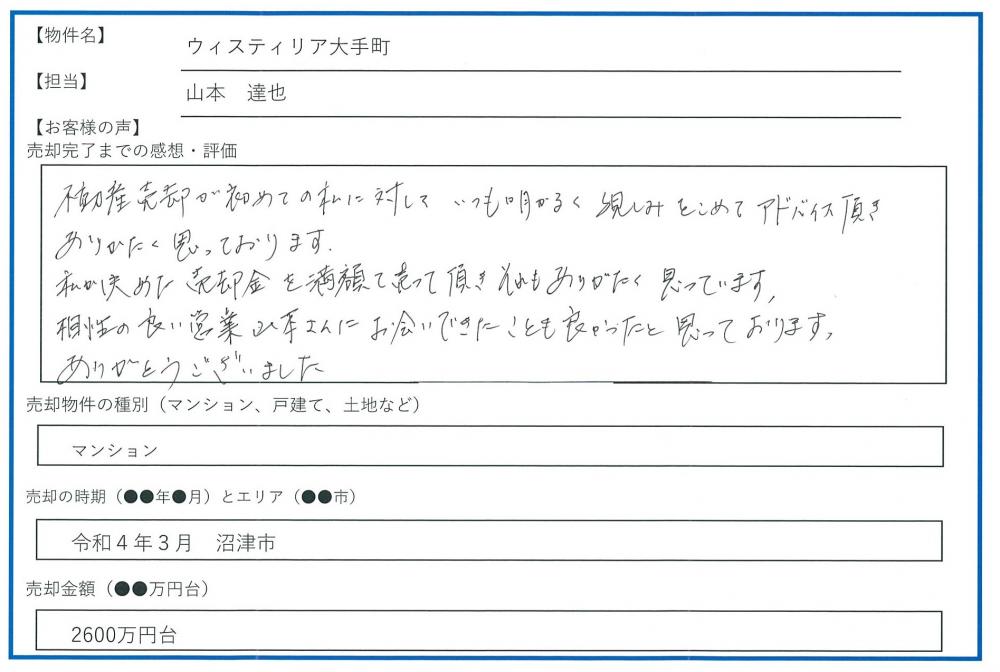 【物件名】
ウィスティリア大手町
【担当】
山本　達也
【お客様の声】
売却完了までの感想・評価
不動産売却が初めての私に対して いつも明かるく 親しみをこめて アドバイス頂き
ありがたく思っております.
私が決めた 売却金を満額で売って頂き それもありがたく 思っています,
相性の良い営業 山本さんに お会いできたことも良かったと思っております,
ありがとうございました
売却物件の種別（マンション、戸建て、土地など）
マンション
売却の時期（●●年●月）とエリア（●●市）
令和４年３月　沼津市
売却金額（●●万円台）
2600万円台